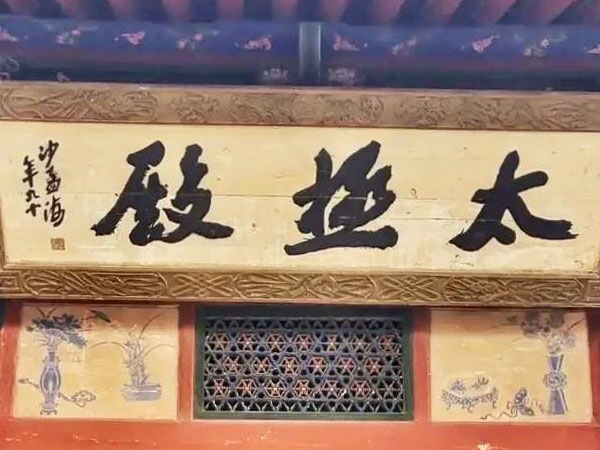 太極殿
沙孟海
年九十